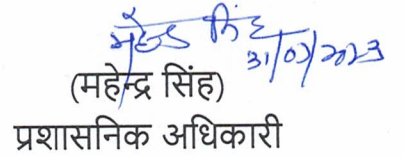 महेन्द्र सिंह
31/07/2023
(महेन्द्र सिंह)
प्रशासनिक अधिकारी